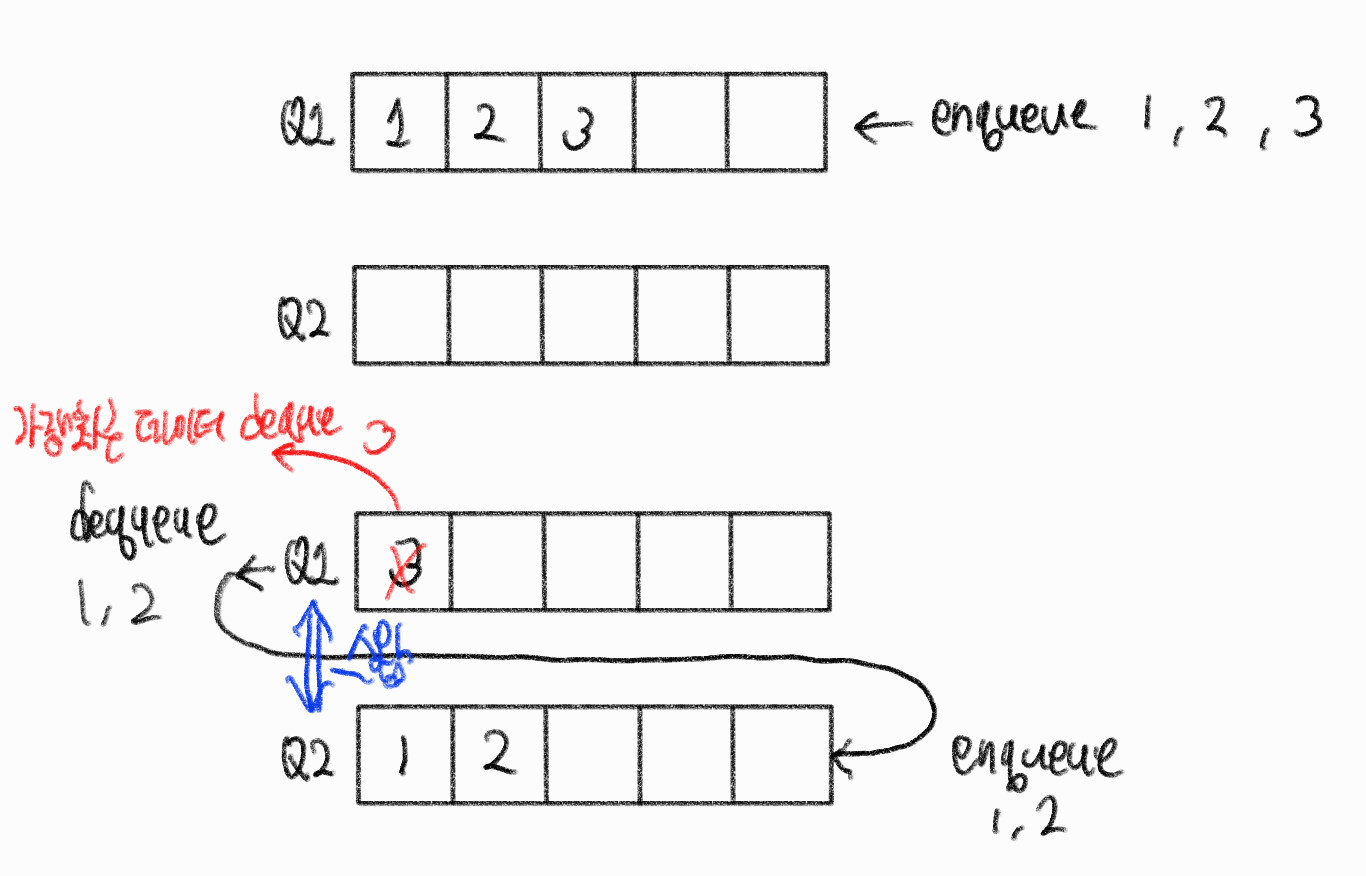 Q1 1 2 3 ← enqueue 1, 2, 3
Q2
deque 3
dequeue
1, 2
Q1 3
스왑
Q2 1 2
enqueue
1, 2